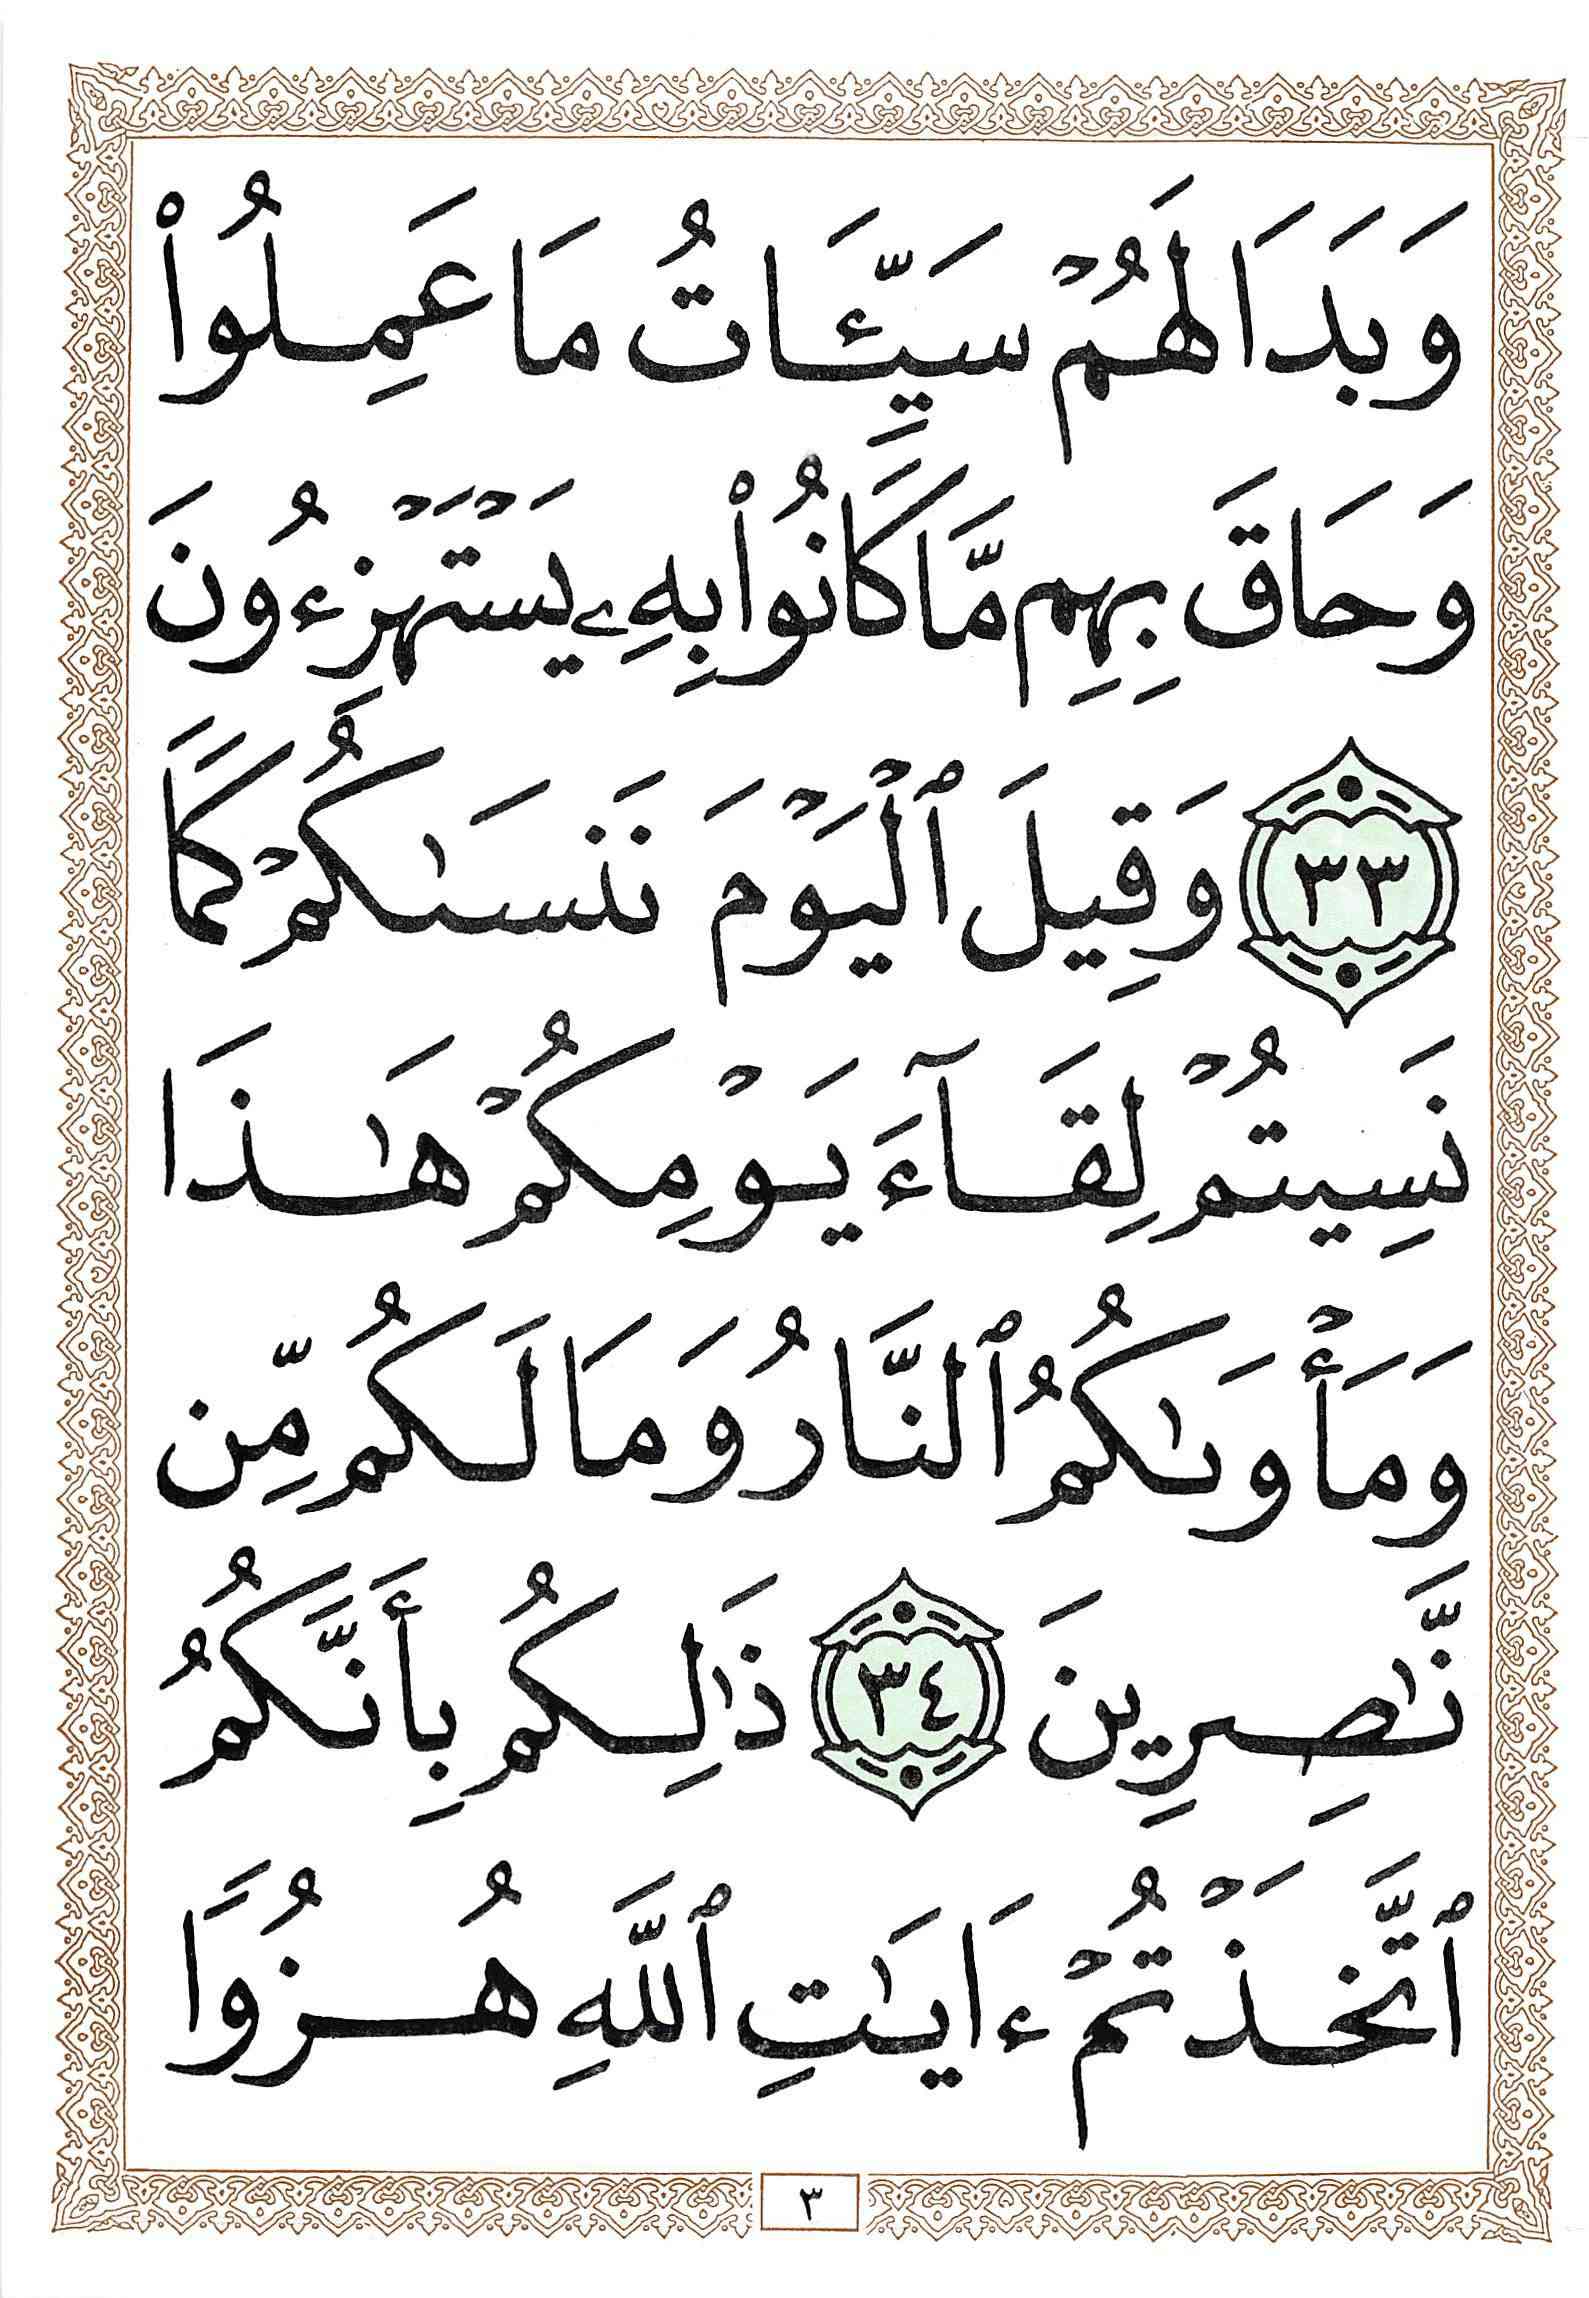 وَبَدَا لَهُمْ سَيِّـَٔاتُ مَا عَمِلُوا۟
وَحَاقَ بِهِم مَّا كَانُوا۟ بِهِۦ يَسْتَهْزِءُونَ
٣٣ وَقِيلَ ٱلْيَوْمَ نَنسَىٰكُمْ كَمَا
نَسِيتُمْ لِقَآءَ يَوْمِكُمْ هَـٰذَا
وَمَأْوَىٰكُمُ ٱلنَّارُ وَمَا لَكُم مِّن
نَّـٰصِرِينَ ٣٤ ذَٰلِكُم بِأَنَّكُمُ
ٱتَّخَذْتُمْ ءَايَـٰتِ ٱللَّهِ هُزُوًا
٣